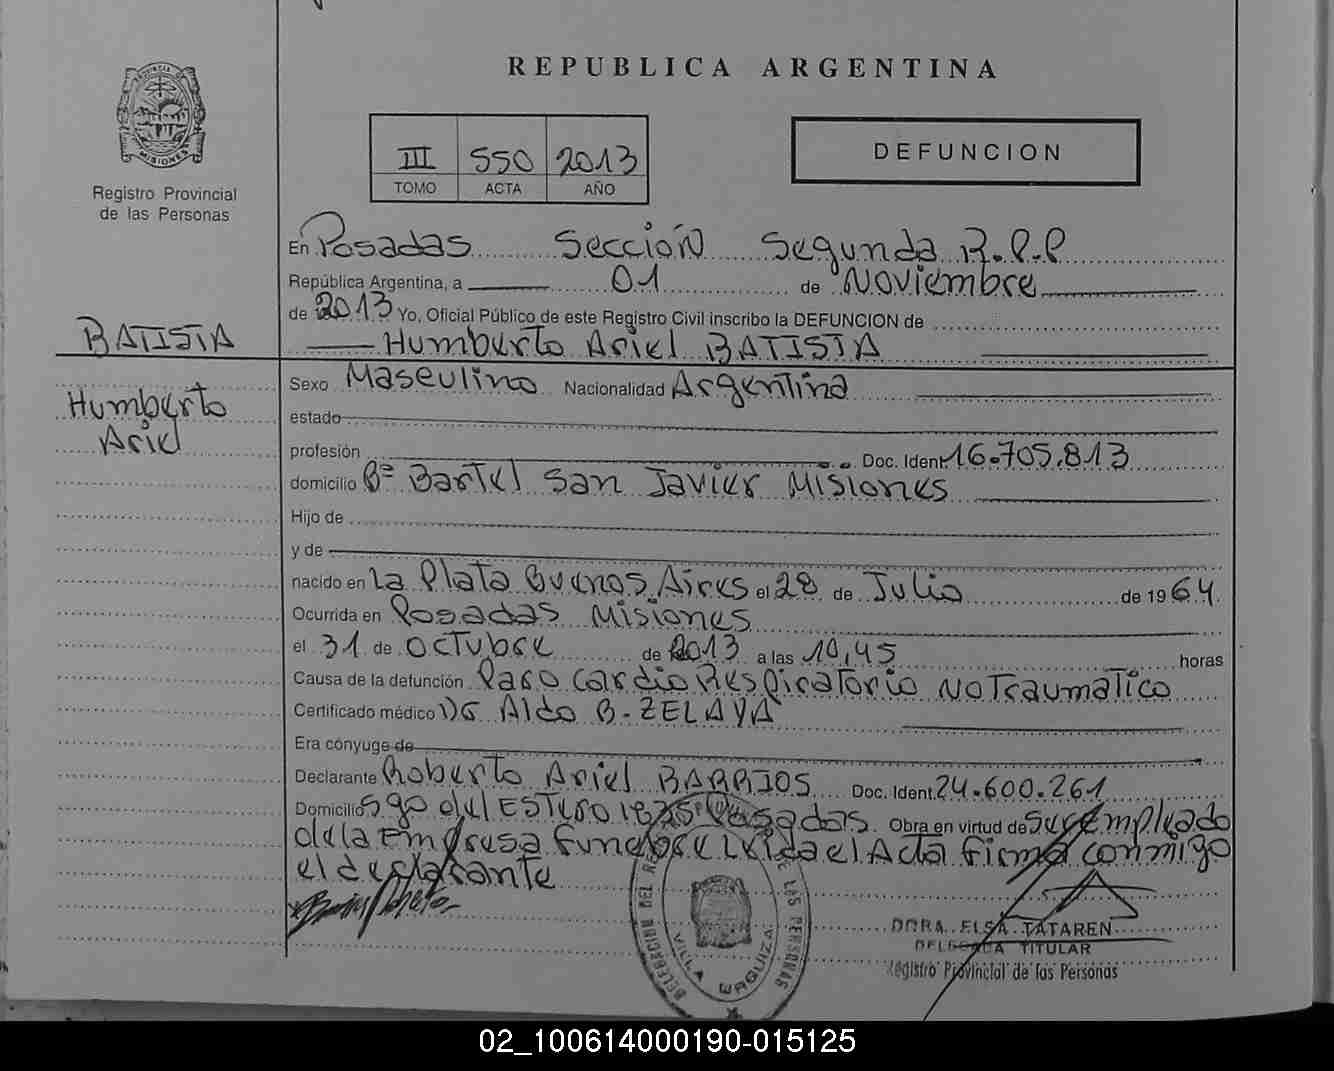 REPUBLICA ARGENTINA
PROVINCIA DE
MISIONES
Registro Provincial
de las Personas
III 550 2013
TOMO ACTA AÑO
DEFUNCION
En Posadas Sección Segunda R.P.P
República Argentina, a 01 de Noviembre
de 2013 Yo, Oficial Público de este Registro Civil inscribo la DEFUNCION de
BATISTA
Humberto Ariel BATISTA
Humberto
Ariel
Sexo Masculino Nacionalidad Argentina
estado
profesión Doc. Ident. 16.705.813
domicilio Bº Bartel San Javier Misiones
Hijo de
y de
nacido en La Plata Buenos Aires el 28 de Julio de 1964
Ocurrida en Posadas Misiones
el 31 de Octubre de 2013 a las 10,45 horas
Causa de la defunción Paro Cardio Respiratorio No Traumatico
Certificado médico Dr Aldo B. ZELAYA
Era cónyuge de
Declarante Roberto Ariel BARRIOS Doc. Ident. 24.600.261
Domicilio Sgo del Estero 1835 Posadas. Obra en virtud de ser empleado
de la Empresa funebre Leida el Acta firma conmigo
el declarante
DELEGACION DEL REG DE LAS PERSONAS
VILLA URQUIZA
DORA. ELSA TATAREN
DELEGADA TITULAR
Registro Provincial de las Personas
02_100614000190-015125